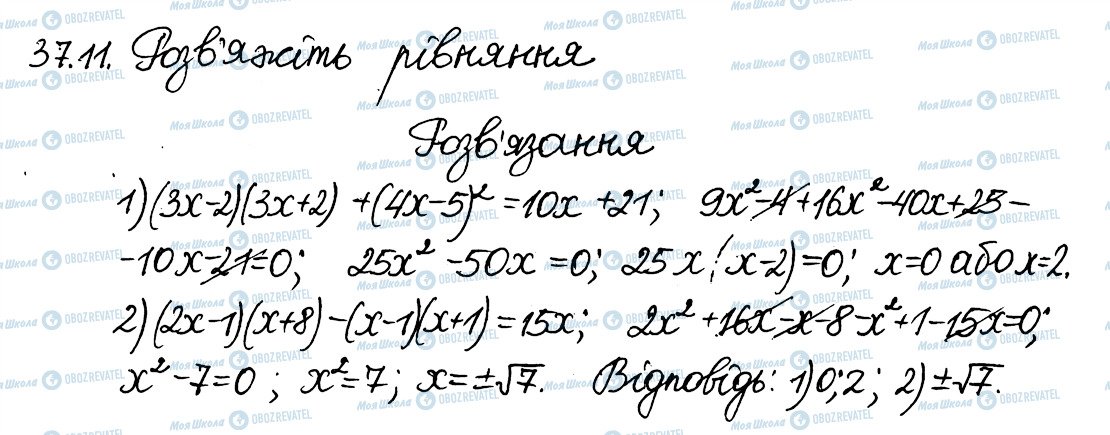 37.11. Розв'яжіть рівняння
Розв'язання
1) (3x-2)(3x+2) +(4x-5)² = 10x +21; 9x²-4+16x²-40x+25-
-10x-21=0; 25x² -50x =0; 25x(x-2)=0; x=0 або x=2.
2) (2x-1)(x+8)-(x-1)(x+1)=15x; 2x²+16x-x-8-x²+1-15x=0;
x²-7=0; x²=7; x=±√7. Відповідь: 1) 0; 2; 2) ±√7.